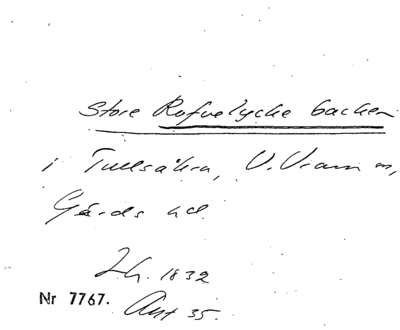 Store Rofvelycke backen
i Tullsåkra, V. Vram sn,
Gärds hd.
Lh. 1832
Nr 7767. Akt 35.